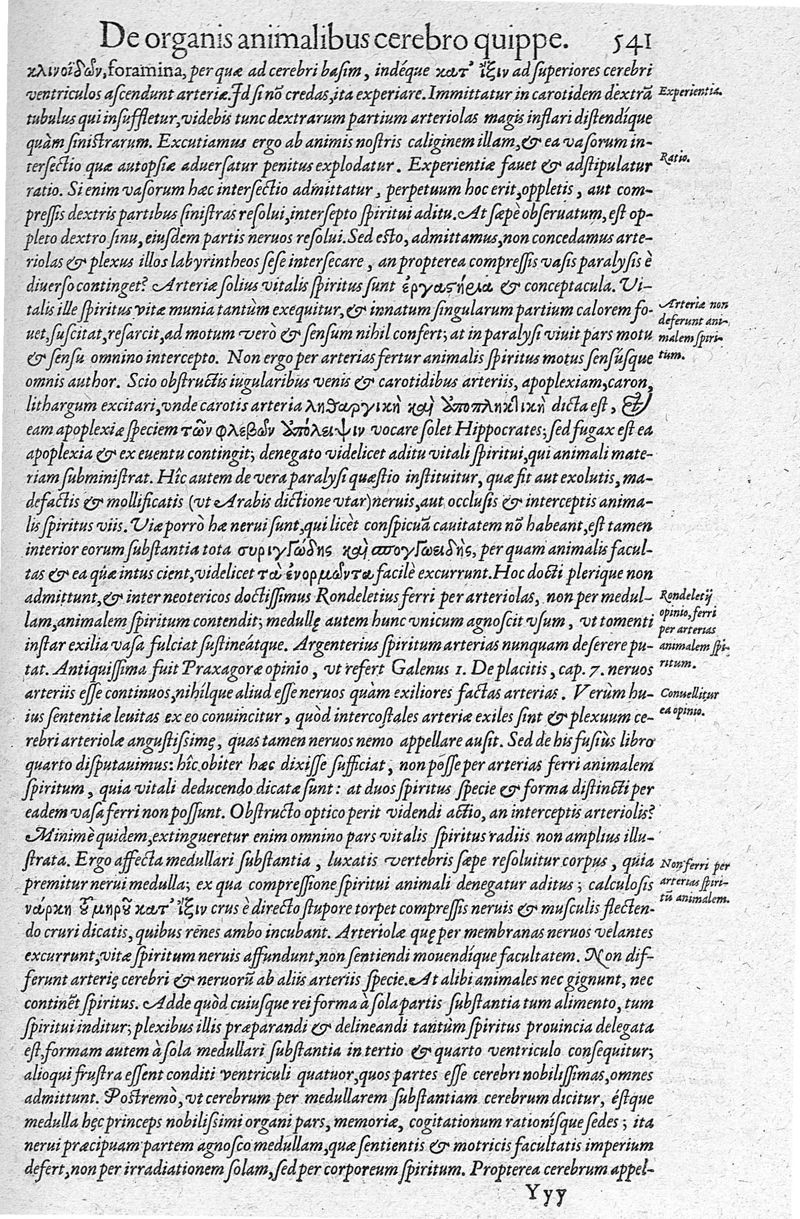 De organis animalibus cerebro quippe. 541
κλινοϊδῶν, foramina, per quæ ad cerebri basim, indéque κατ' ἴξιν ad superiores cerebri
ventriculos ascendunt arteriæ. Id si nõ credas, ita experiare. Immittatur in carotidem dextrã
Experientia.
tubulus qui insuffletur, videbis tunc dextrarum partium arteriolas magis inflari distendíque
quàm sinistrarum. Excutiamus ergo ab animis nostris caliginem illam, & ea vasorum in-
tersectio quæ autopsiæ aduersatur penitus explodatur. Experientiæ fauet & adstipulatur
Ratio.
ratio. Si enim vasorum hæc intersectio admittatur, perpetuum hoc erit, oppletis, aut com-
pressis dextris partibus sinistras resolui, intersepto spiritui aditu. At sæpè obseruatum, est op-
pleto dextro sinu, eiusdem partis neruos resolui. Sed esto, admittamus, non concedamus arte-
riolas & plexus illos labyrintheos sese intersecare, an propterea compressis vasis paralysis è
diuerso continget? Arteriæ solius vitalis spiritus sunt ἐργαστήρια & conceptacula. Vi-
talis ille spiritus vitæ munia tantùm exequitur, & innatum singularum partium calorem fo-
uet, suscitat, resarcit, ad motum verò & sensum nihil confert; at in paralysi viuit pars motu
& sensu omnino intercepto. Non ergo per arterias fertur animalis spiritus motus sensúsque
Arteriæ non
deferunt ani-
malem spiri-
tum.
omnis author. Scio obstructis iugularibus venis & carotidibus arteriis, apoplexiam, caron,
lithargum excitari, vnde carotis arteria ληθαργικὴ καὶ ὑποπληκτικὴ dicta est, &
eam apoplexiæ speciem τῶν φλεβῶν ὑπόλειψιν vocare solet Hippocrates; sed fugax est ea
apoplexia & ex euentu contingit; denegato videlicet aditu vitali spiritui, qui animali mate-
riam subministrat. Hîc autem de vera paralysi quæstio instituitur, quæ fit aut exolutis, ma-
defactis & mollificatis (vt Arabis dictione vtar) neruis, aut occlusis & interceptis anima-
lis spiritus viis. Viæ porrò hæ nerui sunt, qui licèt conspicuã cauitatem nõ habeant, est tamen
interior eorum substantia tota συριγγώδης καὶ σπογγωειδὴς, per quam animalis facul-
tas & ea quæ intus cient, videlicet τὰ ἐνορμῶντα facilè excurrunt. Hoc docti plerique non
admittunt, & inter neotericos doctissimus Rondeletius ferri per arteriolas, non per medul-
lam, animalem spiritum contendit; medullę autem hunc vnicum agnoscit vsum, vt tomenti
instar exilia vasa fulciat sustineátque. Argenterius spiritum arterias nunquam deserere pu-
Rondeletij
opinio, ferri
per arterias
animalem spi-
ritum.
tat. Antiquissima fuit Praxagoræ opinio, vt refert Galenus 1. De placitis, cap. 7. neruos
arteriis esse continuos, nihílque aliud esse neruos quàm exiliores factas arterias. Verùm hu-
ius sententiæ leuitas ex eo conuincitur, quòd intercostales arteriæ exiles sint & plexuum ce-
Conuellitur
ea opinio.
rebri arteriolæ angustissimę, quas tamen neruos nemo appellare ausit. Sed de his fusiùs libro
quarto disputauimus: hîc obiter hæc dixisse sufficiat, non posse per arterias ferri animalem
spiritum, quia vitali deducendo dicatæ sunt: at duos spiritus specie & forma distincti per
eadem vasa ferri non possunt. Obstructo optico perit videndi actio, an interceptis arteriolis?
Minimè quidem, extingueretur enim omnino pars vitalis spiritus radiis non amplius illu-
strata. Ergo affecta medullari substantia, luxatis vertebris sæpe resoluitur corpus, quia
premitur nerui medulla; ex qua compressione spiritui animali denegatur aditus; calculosis
Non ferri per
arterias spiri-
tũ animalem.
νάρκη τοῦ μηροῦ κατ' ἴξιν crus è directo stupore torpet compressis neruis & musculis flecten-
do cruri dicatis, quibus renes ambo incubant. Arteriolæ quę per membranas neruos velantes
excurrunt, vitæ spiritum neruis affundunt, non sentiendi mouendíque facultatem. Non dif-
ferunt arterię cerebri & neruorũ ab aliis arteriis specie. At alibi animales nec gignunt, nec
continẽt spiritus. Adde quòd cuiusque rei forma à sola partis substantia tum alimento, tum
spiritui inditur; plexibus illis præparandi & delineandi tantùm spiritus prouincia delegata
est, formam autem à sola medullari substantia in tertio & quarto ventriculo consequitur;
alioqui frustra essent conditi ventriculi quatuor, quos partes esse cerebri nobilissimas, omnes
admittunt. Postremò, vt cerebrum per medullarem substantiam cerebrum dicitur, éstque
medulla hęc princeps nobilissimi organi pars, memoriæ, cogitationum rationísque sedes; ita
nerui præcipuam partem agnosco medullam, quæ sentientis & motricis facultatis imperium
defert, non per irradiationem solam, sed per corporeum spiritum. Propterea cerebrum appel-
Yyy